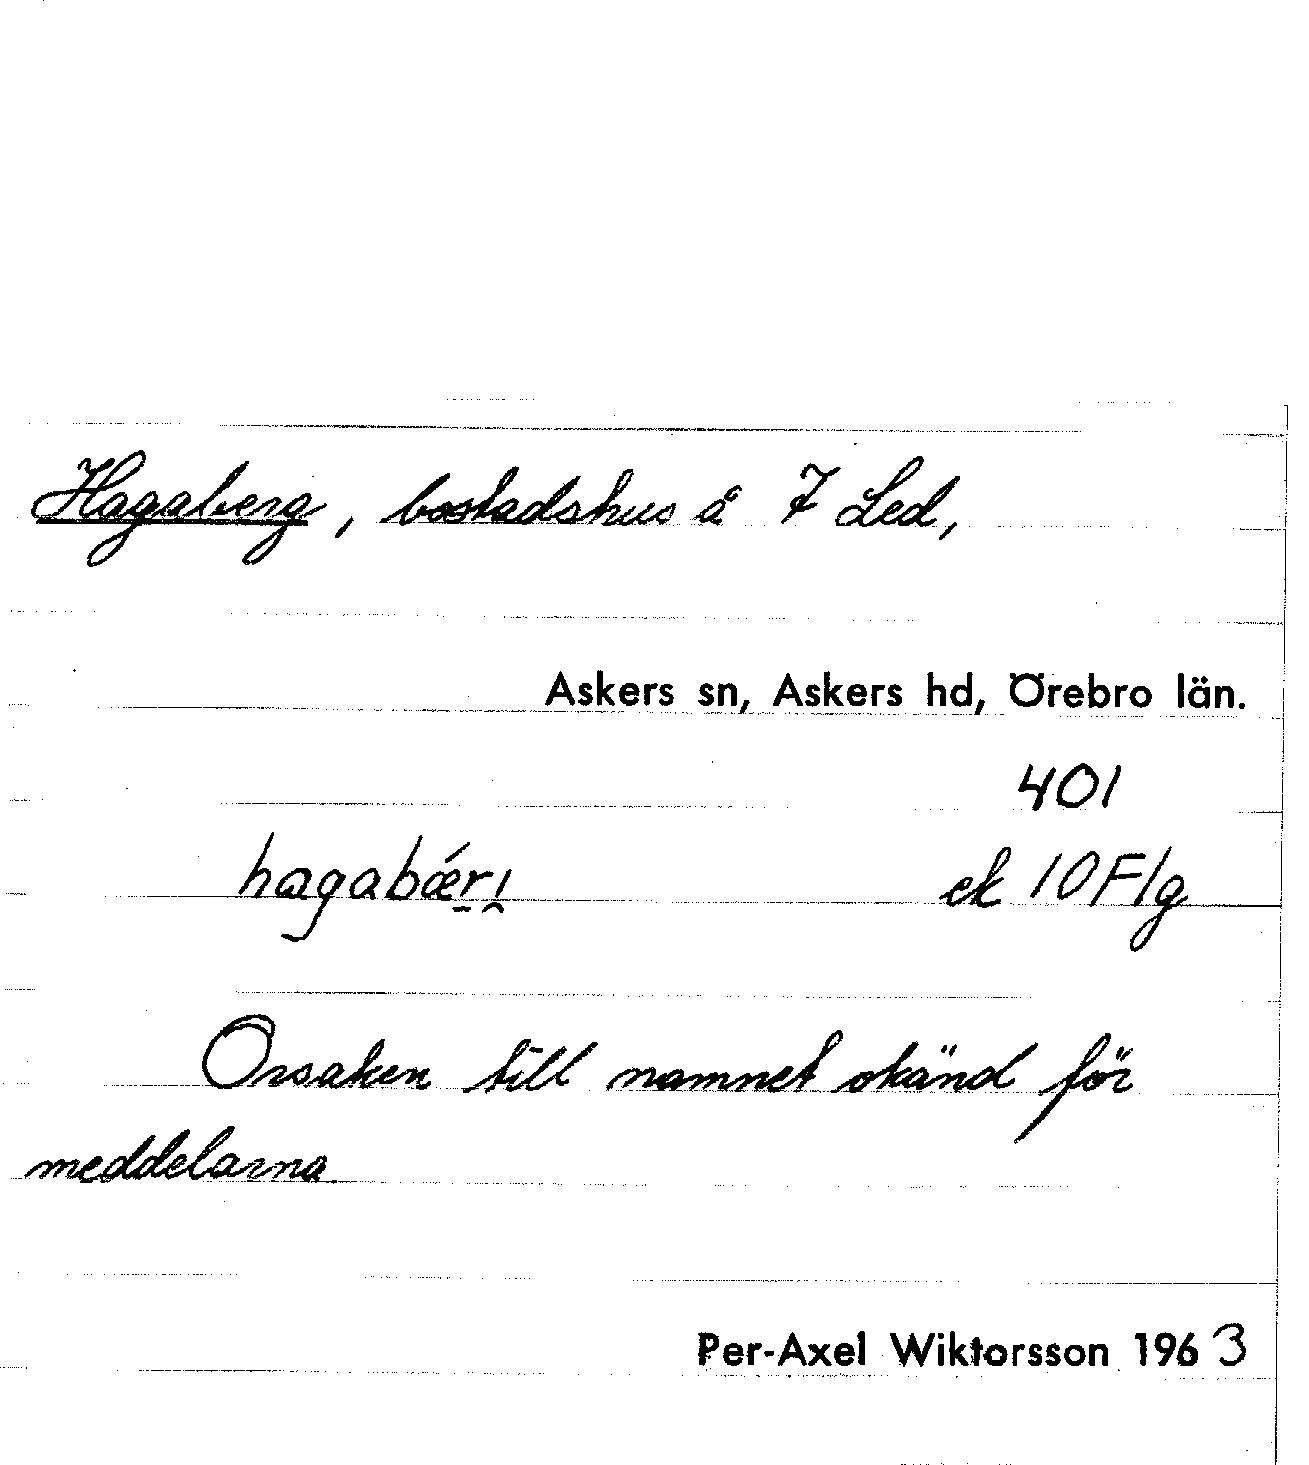 Hagaberg, bostadshus å 7 Led,
Askers sn, Askers hd, Örebro län.
401
hagabǽr̠ı̯ ek 10F/g
Orsaken till namnet okänd för
meddelarna.
Per-Axel Wiktorsson 1963